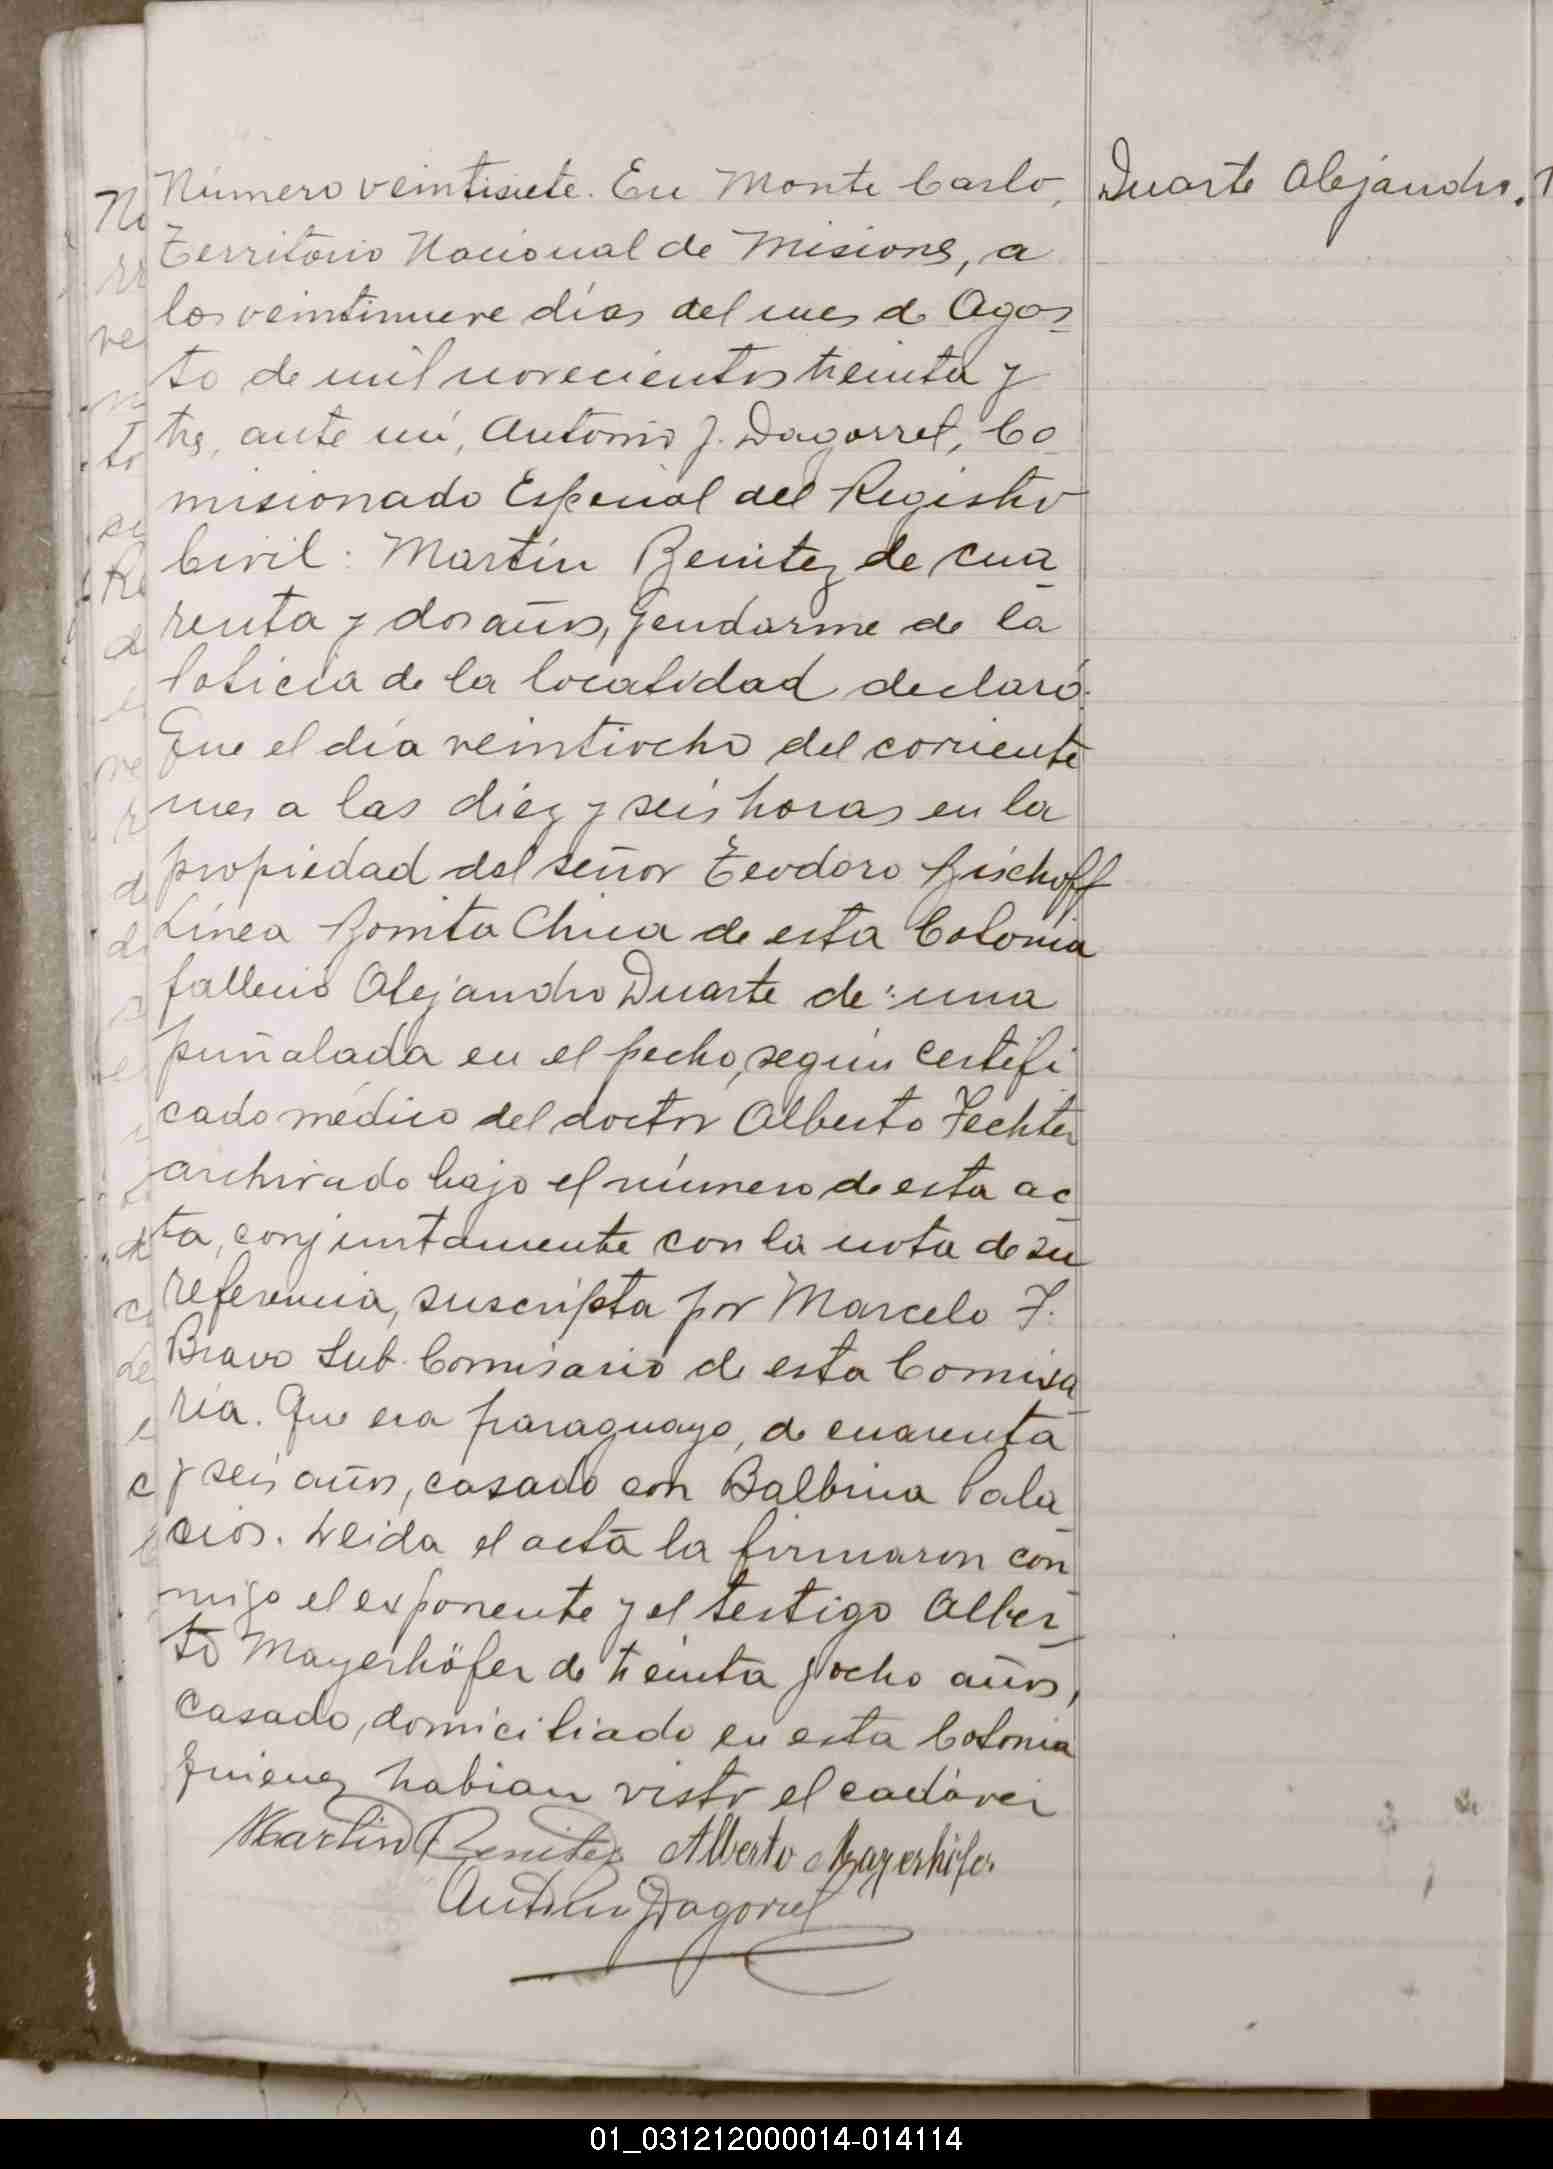 Número veintisiete. En Monte Carlo,
Duarte Alejandro.
Territorio Nacional de Misiones, a
los veintinueve días del mes de Agos-
to de mil novecientos treinta y
tres, ante mí, Antonio J. Dagorret, Co-
misionado Especial del Registro
Civil: Martín Benitez de cua-
renta y dos años, Gendarme de la
Policía de la localidad declaró:
Que el día veintiocho del corriente
mes a las diez y seis horas en la
propiedad del señor Teodoro Bischoff
Línea Bonita Chica de esta Colonia
falleció Alejandro Duarte de: una
puñalada en el pecho, según certifi
cado médico del doctor Alberto Fechter
archivado bajo el número de esta ac-
ta, conjuntamente con la nota de su
referencia, suscripta por Marcelo F.
Bravo Sub-Comisario de esta Comisa-
ría. Que era paraguayo, de cuarenta
y seis años, casado con Balbina Pala-
cios. Leida el acta la firmaron con-
migo el exponente y el testigo Alber-
to Mayerhöfer de treinta y ocho años,
casado, domiciliado en esta Colonia
quienes habian visto el cadáver
Martin Benitez Alberto Mayerhöfer
Antonio J Dagorret
01_031212000014-014114